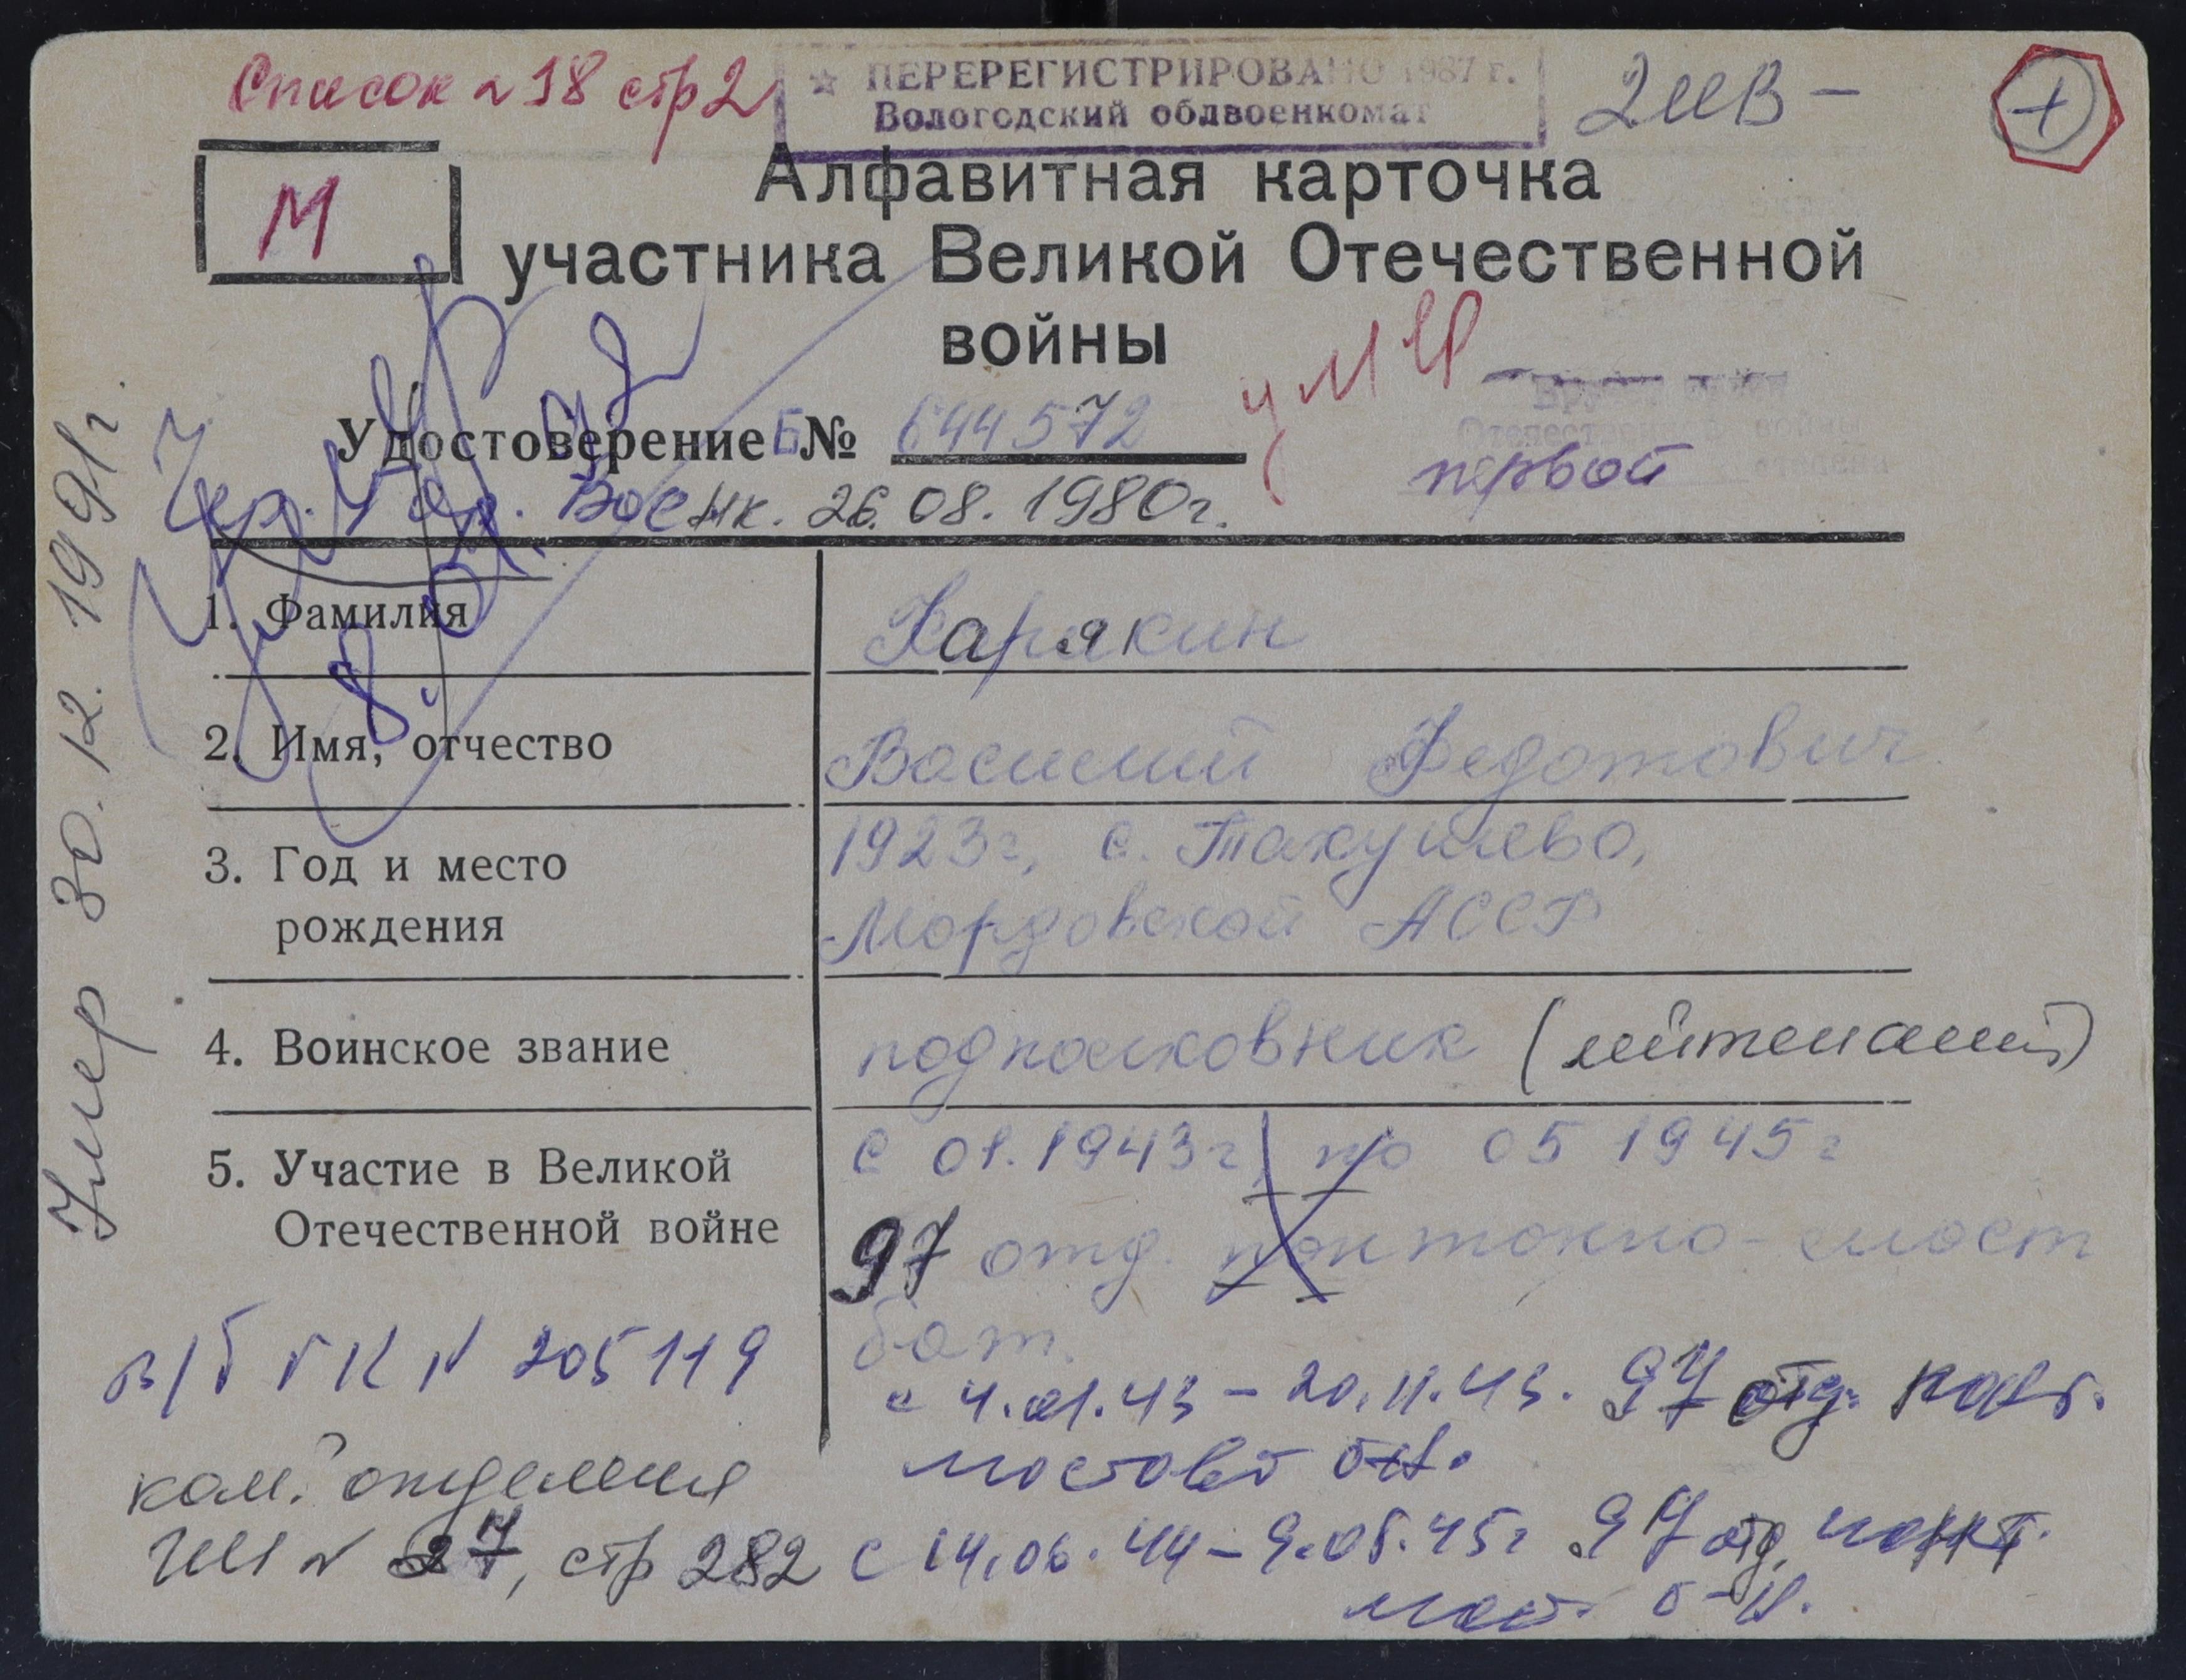 Список N 18 стр 2
☆ ПЕРЕРЕГИСТРИРОВАНО 1987 г.
Вологодский облвоенкомат
+
М
Алфавитная карточка
участника Великой Отечественной
войны
умер
Удостоверение Б № 644572
Отечественной войны
первой степени
26.08.1980г.
1. Фамилия
Карякин
2. Имя, отчество
Василий Федотович
3. Год и место
рождения
1923г, с. Такушево,
Мордовской АССР
4. Воинское звание
подполковник (лейтенант)
5. Участие в Великой
Отечественной войне
с 01.1943г по 05 1945г
97 отд. понтонно-мост
бат.
с 4.01.43 - 20.11.43. 97 отд. понт.
мостовой б-н.
с 14.06.44 - 9.05.45г 97 отд. понт.
мост б-н.
в/б ГК N 205119
ком. отделения
N 27, стр 282
Умер 30.12.1991г.